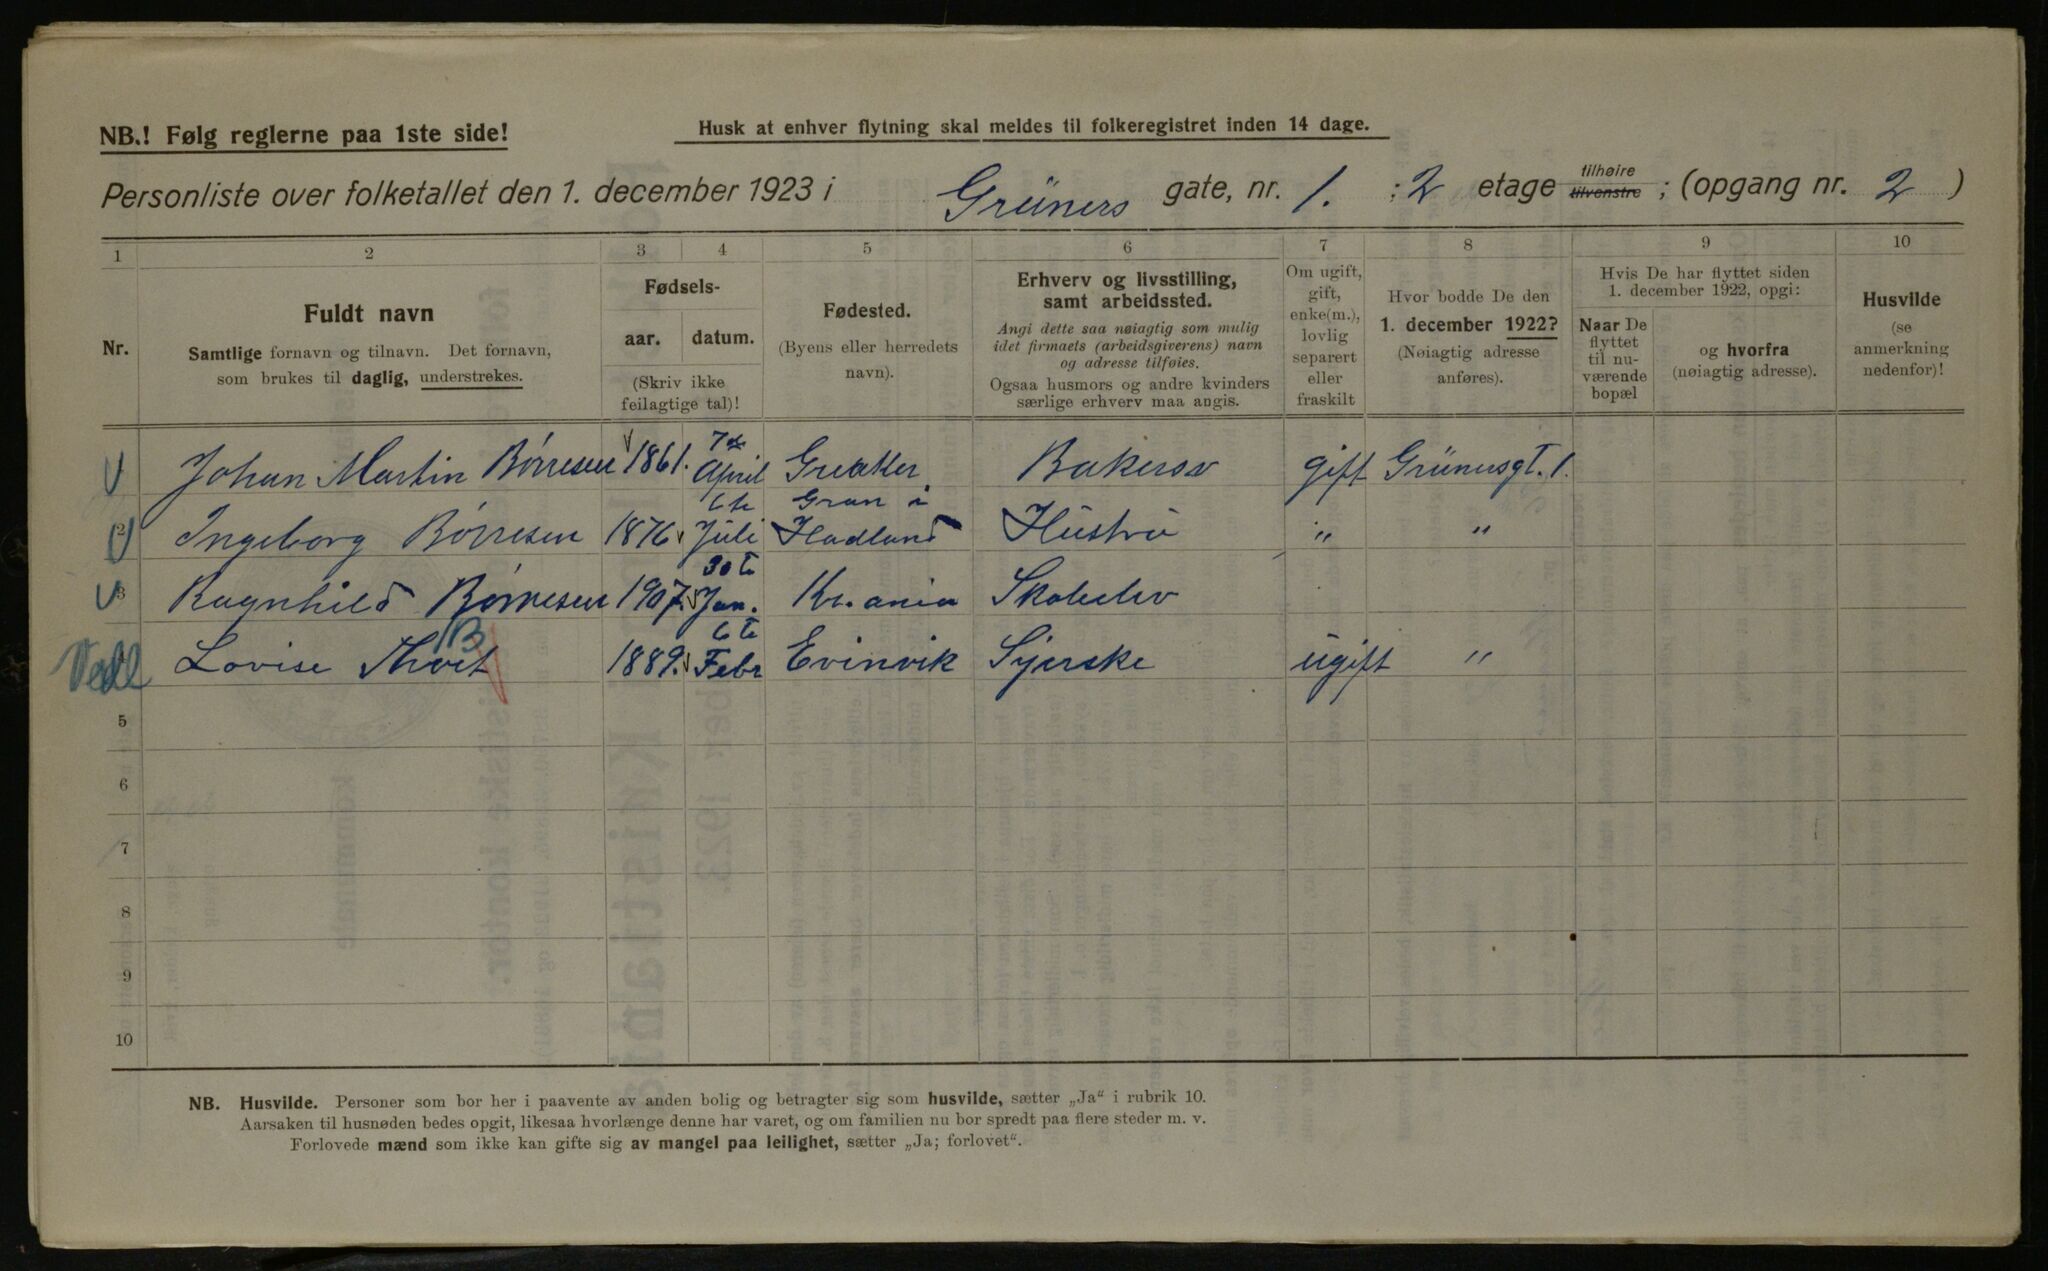 NB.! Følg reglerne paa 1ste side!
Husk at enhver flytning skal meldes til folkeregistret inden 14 dage.
Personliste over folketallet den 1. december 1923 i Grüners gate, nr. 1. : 2 etage tilhøire tilvenstre ; (opgang nr. 2 )
1 2 3 4 5 6 7 8 9 10
Nr.
Fuldt navn
Samtlige fornavn og tilnavn. Det fornavn,
som brukes til daglig, understrekes.
Fødsels-
aar. datum.
(Skriv ikke
feilagtige tal)!
Fødested.
(Byens eller herredets
navn).
Erhverv og livsstilling,
samt arbeidssted.
Angi dette saa nøiagtig som mulig
idet firmaets (arbeidsgiverens) navn
og adresse tilføies.
Ogsaa husmors og andre kvinders
særlige erhverv maa angis.
Om ugift,
gift,
enke(m.),
lovlig
separert
eller
fraskilt
Hvor bodde De den
1. december 1922?
(Nøiagtig adresse
anføres).
Hvis De har flyttet siden
1. december 1922, opgi:
Naar De
flyttet
til nu-
værende
bopæl
og hvorfra
(nøiagtig adresse).
Husvilde
(se
anmerkning
nedenfor)!
Johan Martin Børresen 1861. 7de April Greaker Gift Grünersgt. 1.
2 Ingeborg Børresen 1876 6te Juli Gran i Hadland Hustru " "
3 Ragnhild Børresen 1907. 30te Jan. Kr.ania Skoleelev
Lovise 1889. 6te Febr Evinvik Syerske ugift "
B
5
6
7
8
9
10
NB. Husvilde. Personer som bor her i paavente av anden bolig og betragter sig som husvilde, sætter „Ja“ i rubrik 10.
Aarsaken til husnøden bedes opgit, likesaa hvorlænge denne har varet, og om familien nu bor spredt paa flere steder m. v.
Forlovede mænd som ikke kan gifte sig av mangel paa leilighet, sætter „Ja; forlovet“.